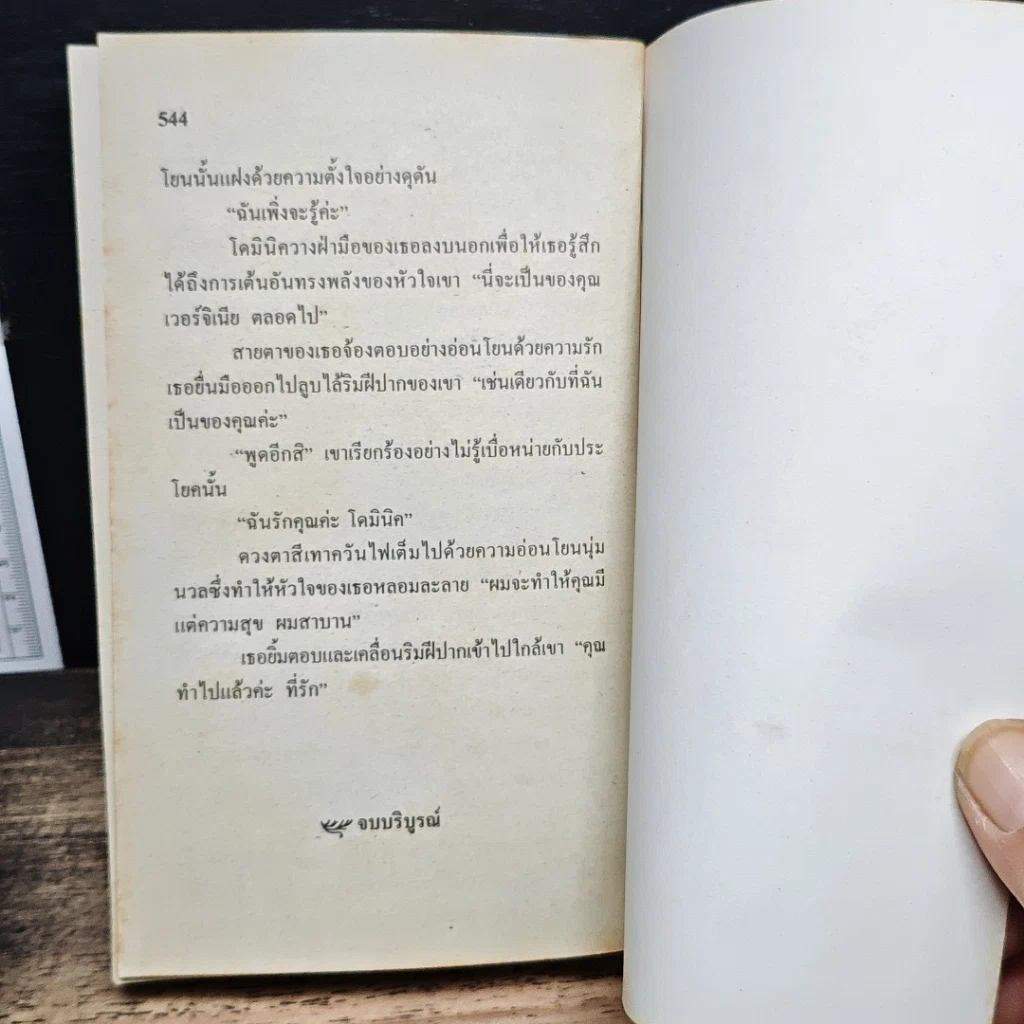 544
โยนนั้นแฝงด้วยความตั้งใจอย่างดุดัน
“ฉันเพิ่งจะรู้ค่ะ”
โดมินิควางฝ่ามือของเธอลงบนอกเพื่อให้เธอรู้สึก
ได้ถึงการเต้นอันทรงพลังของหัวใจเขา “นี่จะเป็นของคุณ
เวอร์จิเนีย ตลอดไป”
สายตาของเธอจ้องตอบอย่างอ่อนโยนด้วยความรัก
เธอยื่นมือออกไปลูบไล้ริมฝีปากของเขา “เช่นเดียวกับที่ฉัน
เป็นของคุณค่ะ”
“พูดอีกสิ” เขาเรียกร้องอย่างไม่รู้เบื่อหน่ายกับประ
โยคนั้น
“ฉันรักคุณค่ะ โดมินิค”
ดวงตาสีเทาควันไฟเต็มไปด้วยความอ่อนโยนนุ่ม
นวลซึ่งทำให้หัวใจของเธอหลอมละลาย “ผมจะทำให้คุณมี
แต่ความสุข ผมสาบาน”
เธอยิ้มตอบและเคลื่อนริมฝีปากเข้าไปใกล้เขา “คุณ
ทำไปแล้วค่ะ ที่รัก”
จบบริบูรณ์